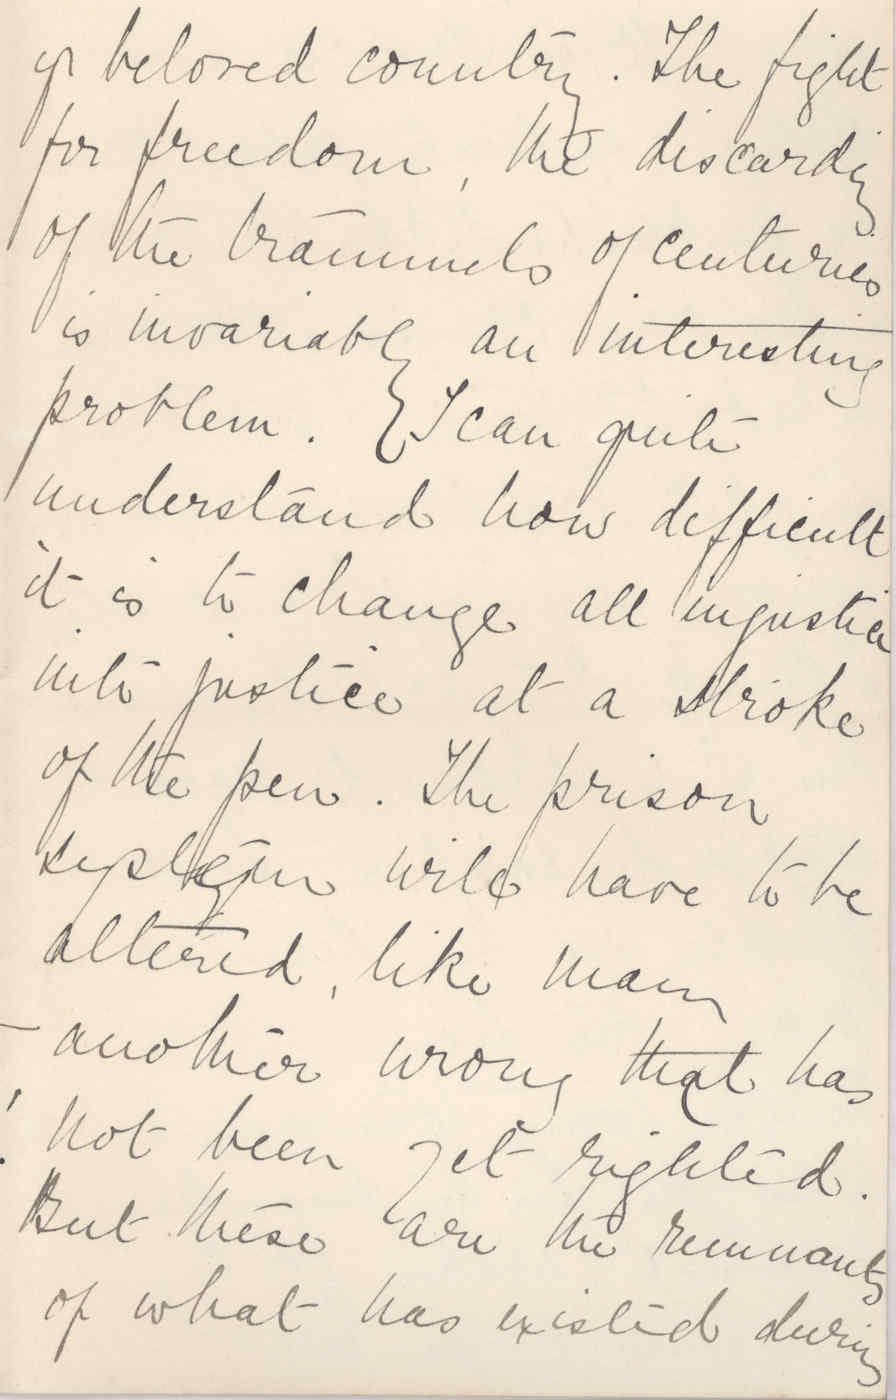 yr beloved country. The fight
for freedom, the discarding
of the trammels of centuries
is invariably an interesting
problem. { I can quite
understand how difficult
it is to change all injustice
into justice at a stroke
of the pen. The prison
system will have to be
altered, like many
another wrong that has
not been yet righted.
But these are the remnants
of what has existed during